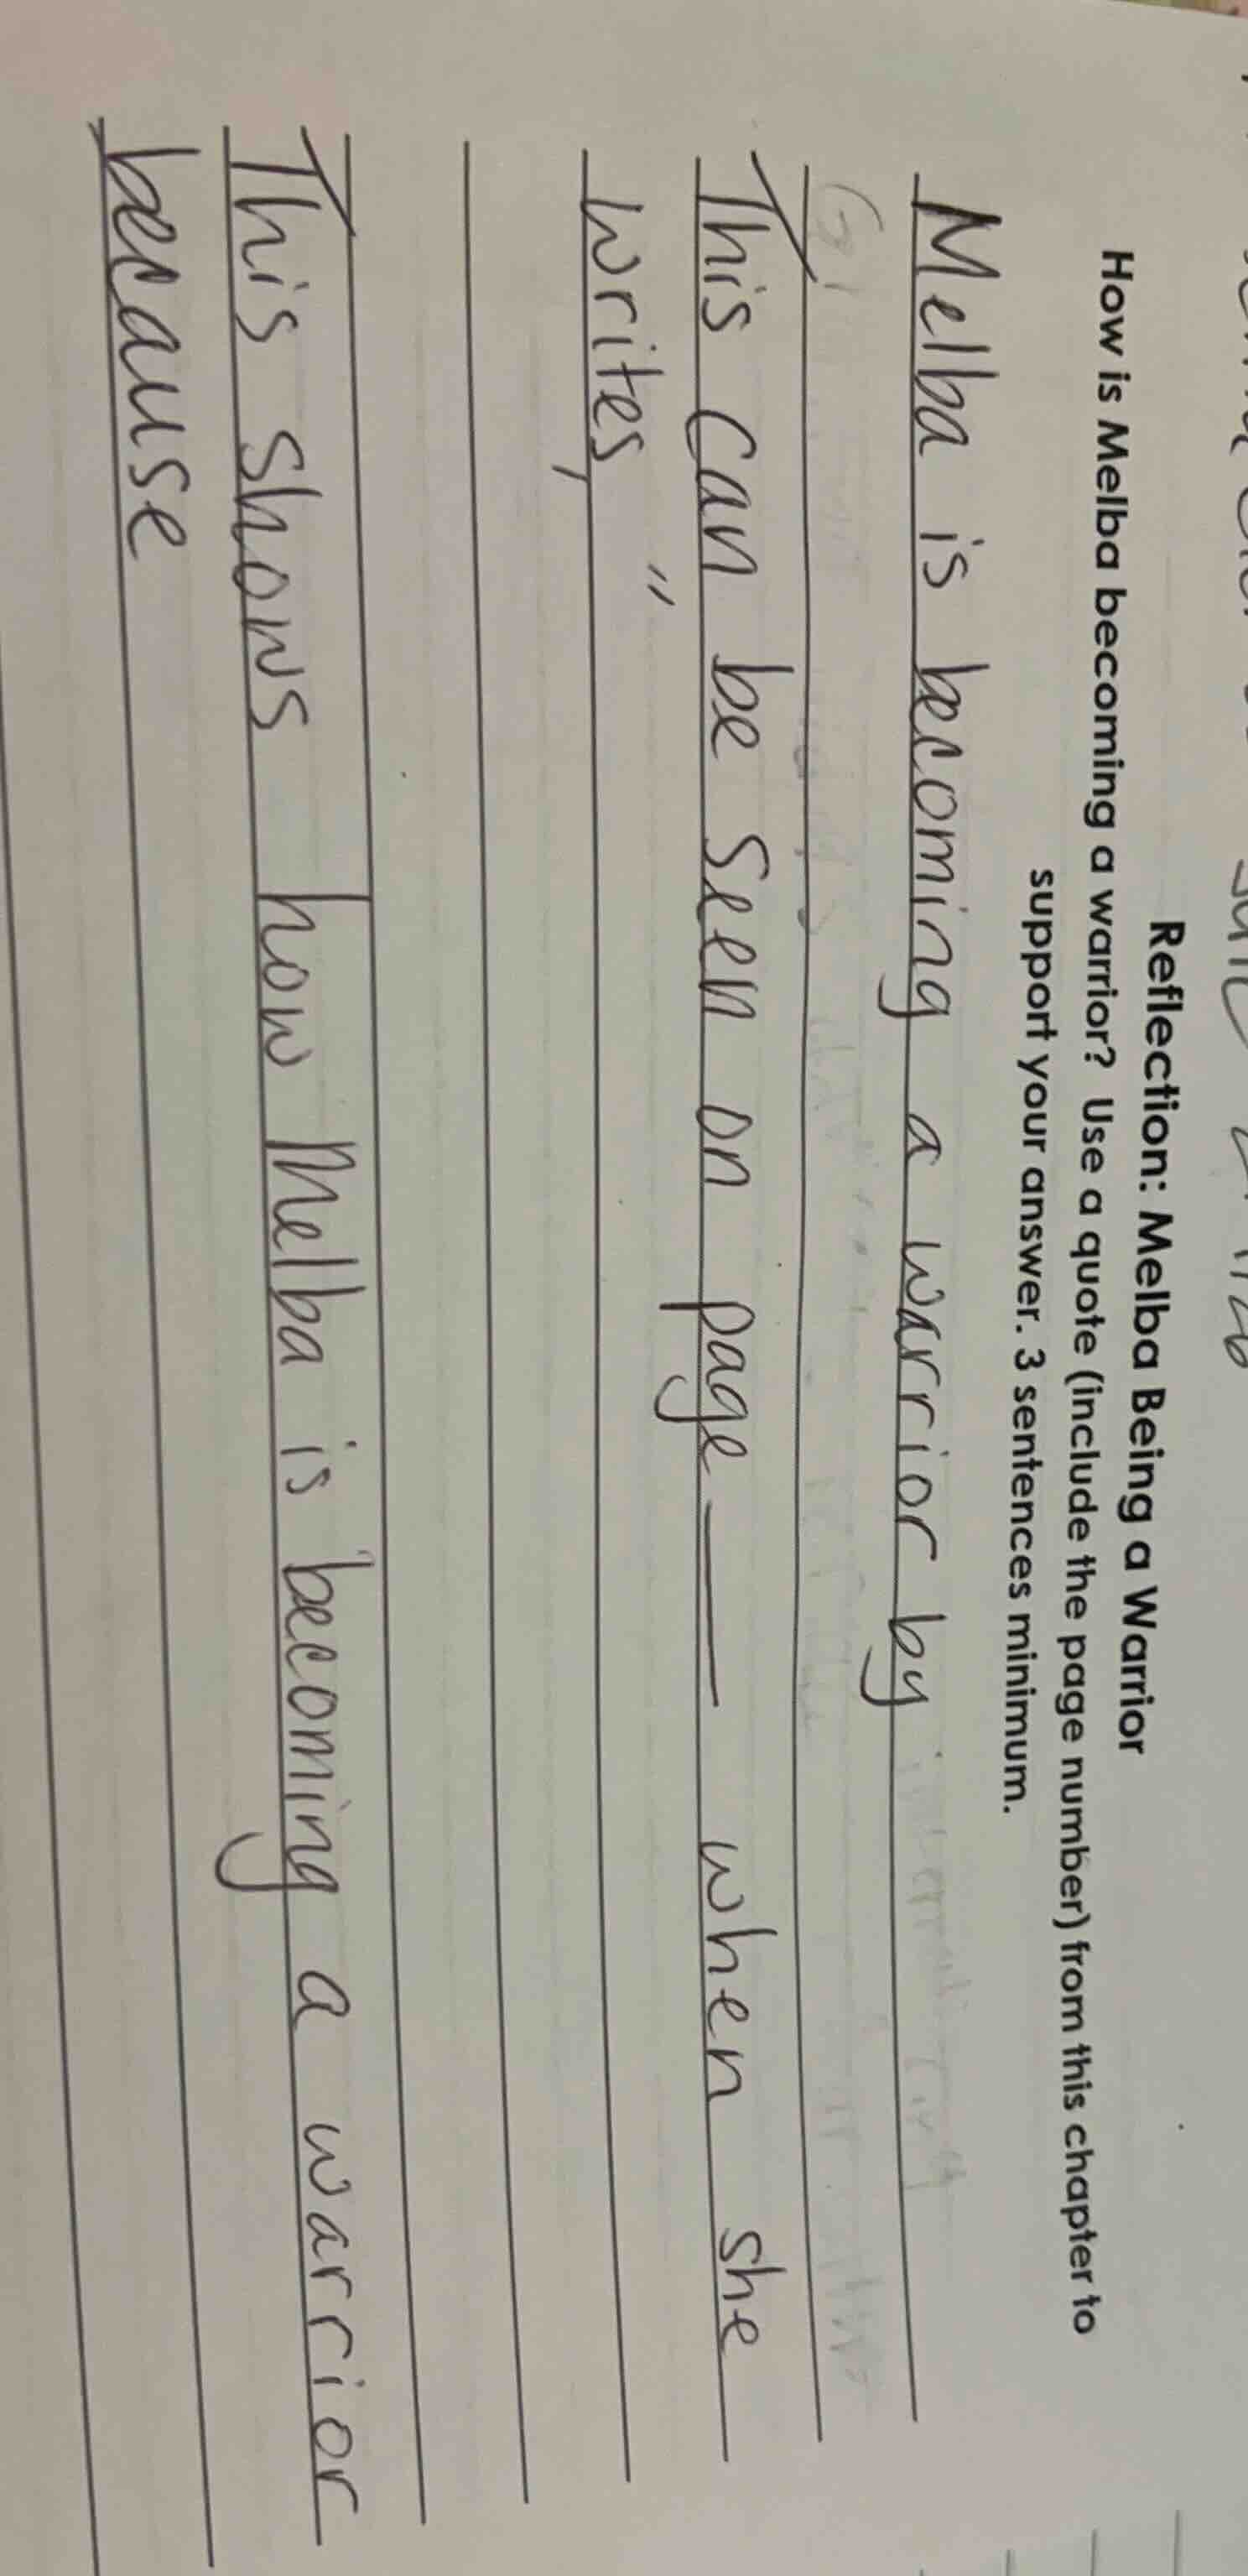 Reflection: Melba Being a Warrior
How is Melba becoming a warrior? Use a quote (include the page number) from this chapter to
support your answer. 3 sentences minimum.
Melba is becoming a warrior by
This can be seen on page ___ when she
writes, "
This shows how Melba is becoming a warrior
because